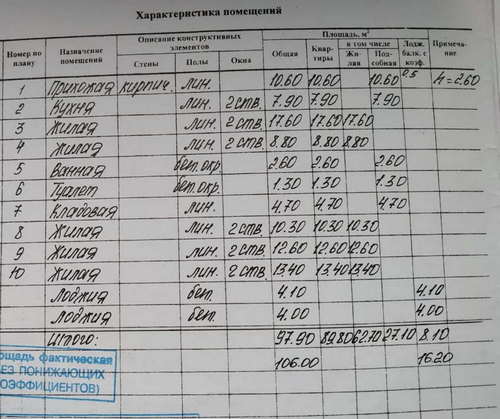 Характеристика помещений
Номер по плану Назначение помещений Описание конструктивных элементов Площадь, м² Лодж. балк. с коэф. Примеча- ние
Стены Полы Окна Общая Квар- тиры в том числе
Жи- лая Под- собная
1 Прихожая кирпич. лин. 10.60 10.60 10.60 0.5 h=2.60
2 Кухня лин. 2 ств. 7.90 7.90 7.90
3 Жилая лин. 2 ств. 17.60 17.60 17.60
4 Жилая лин. 2 ств. 8.80 8.80 8.80
5 Ванная бет. окр. 2.60 2.60 2.60
6 Туалет бет. окр. 1.30 1.30 1.30
7 Кладовая лин. 4.70 4.70 4.70
8 Жилая лин. 2 ств. 10.30 10.30 10.30
9 Жилая лин. 2 ств. 12.60 12.60 12.60
10 Жилая лин. 2 ств. 13.40 13.40 13.40
Лоджия бет. 4.10 4.10
Лоджия бет. 4.00 4.00
Итого: 97.90 89.80 62.70 27.10 8.10
106.00 16.20
ощадь фактическая
ЕЗ ПОНИЖАЮЩИХ
ОЭФФИЦИЕНТОВ)